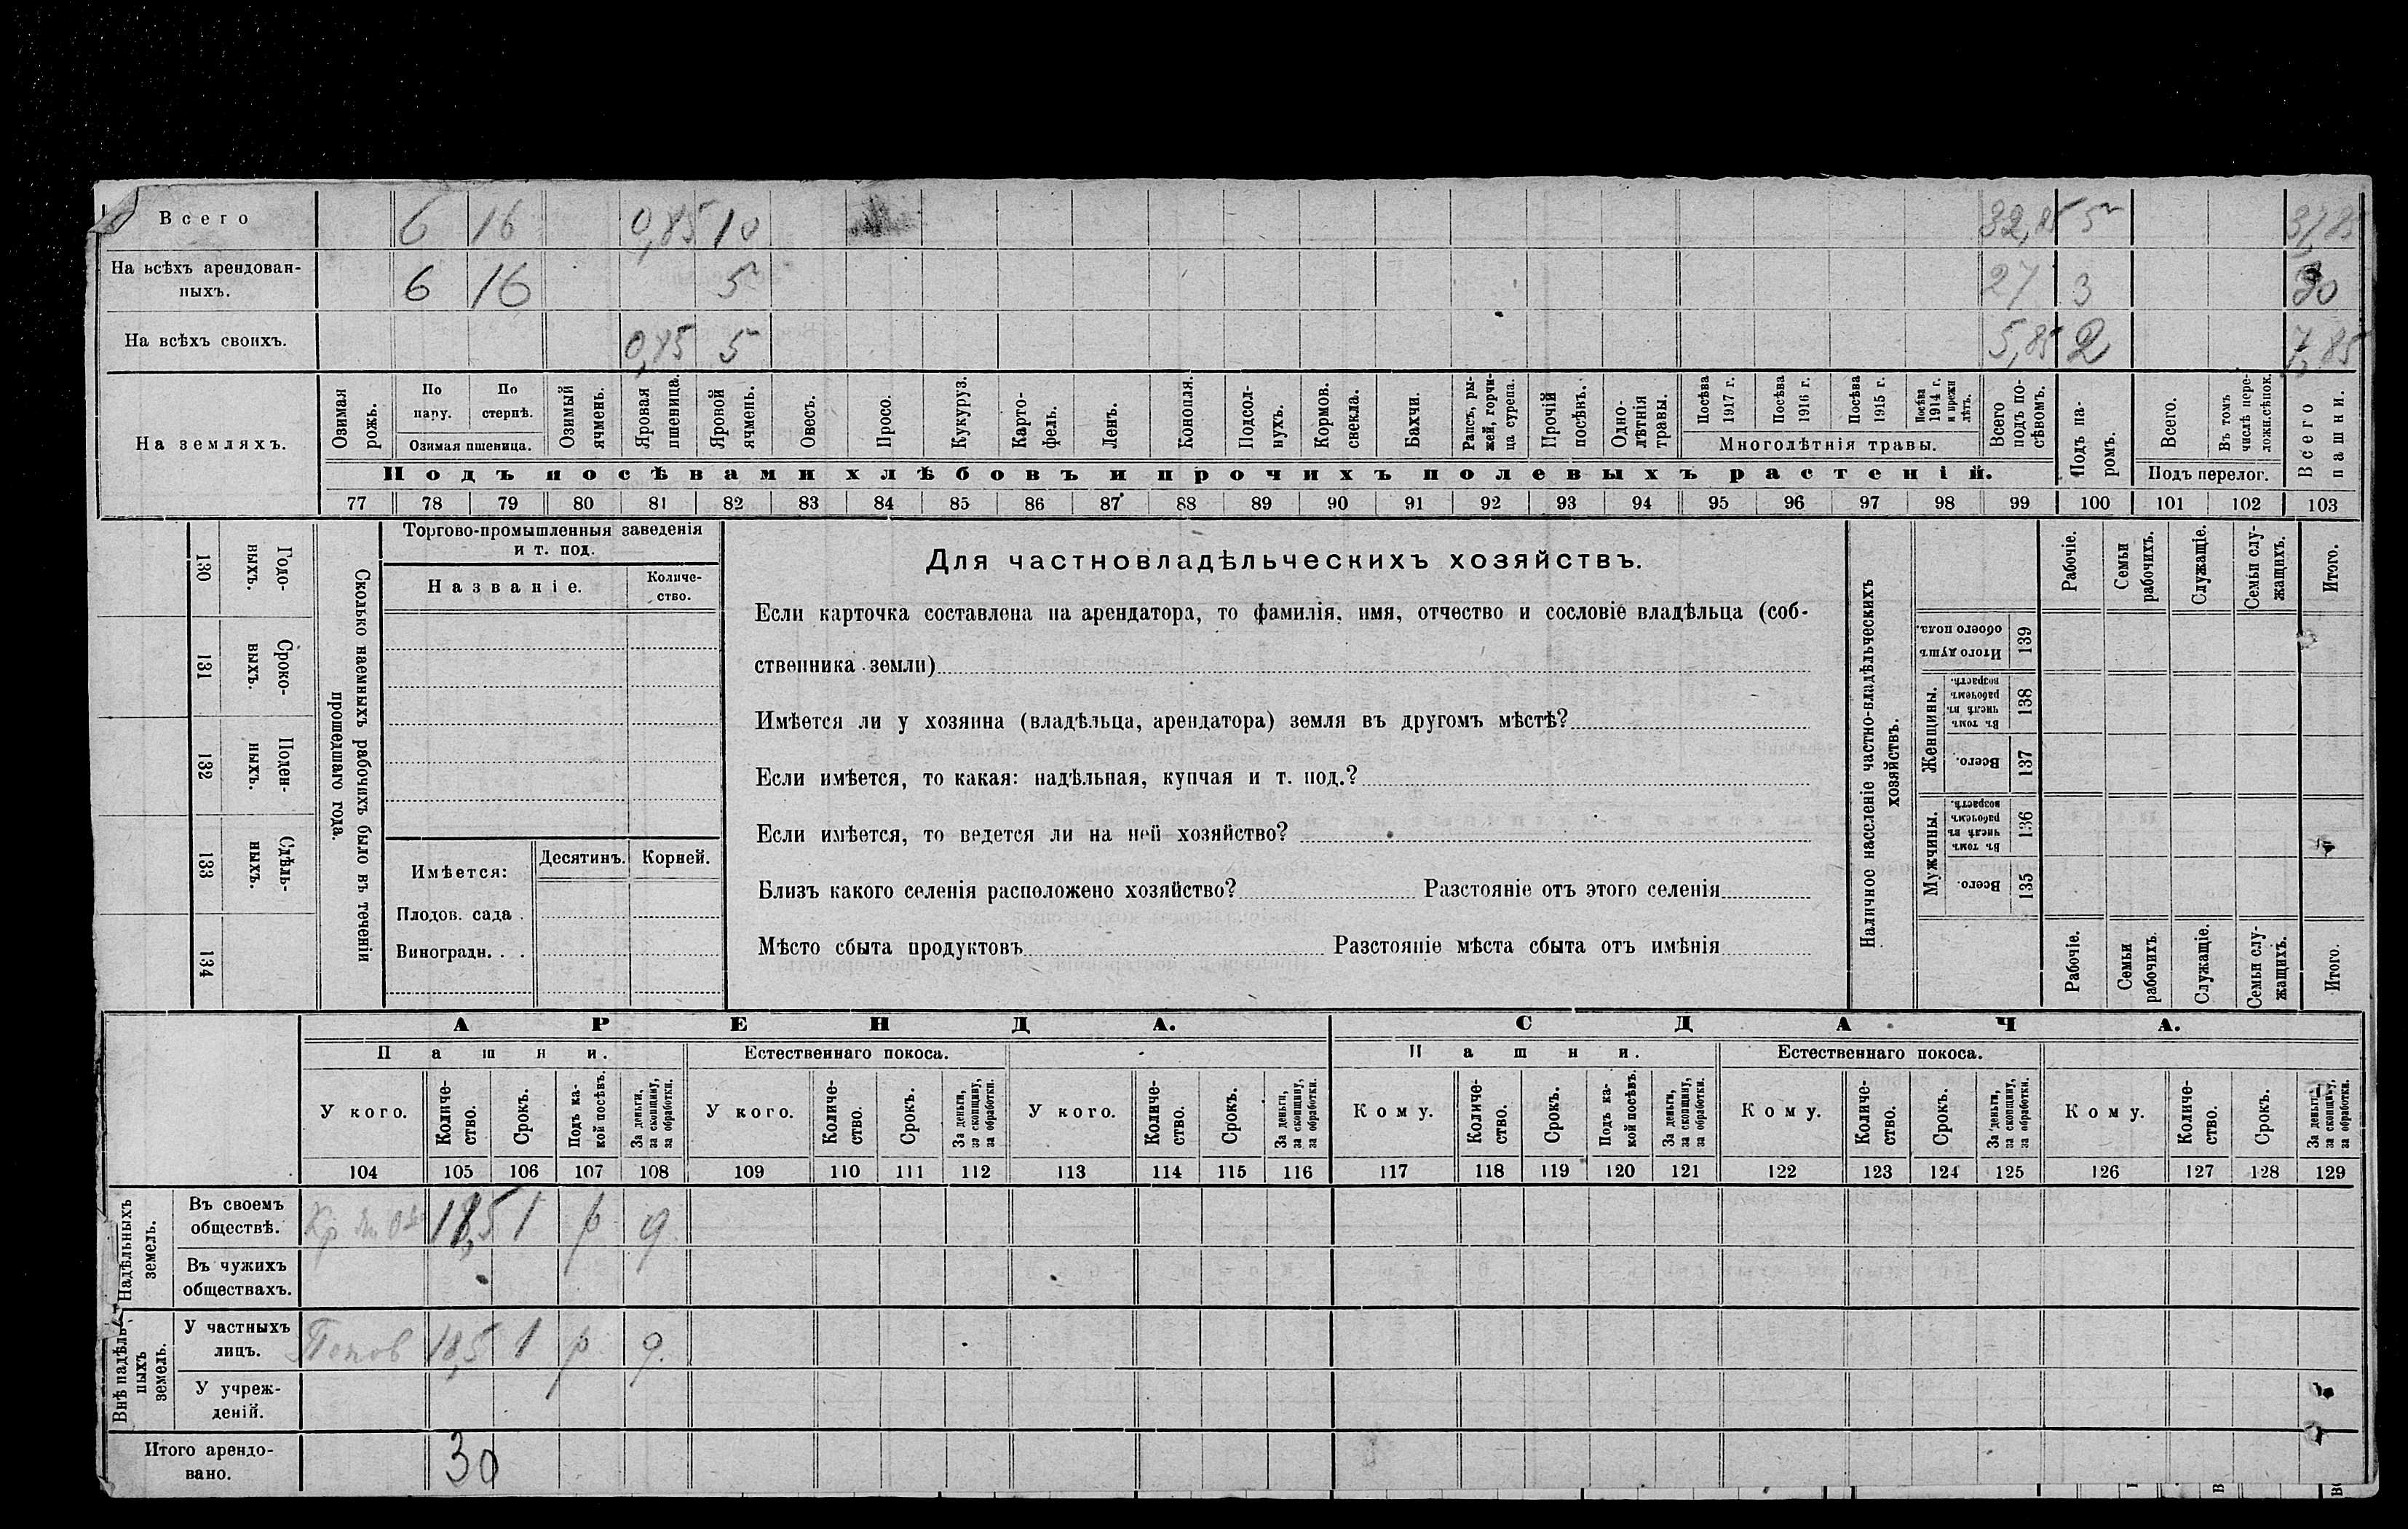 Всего 6 16 0,85 10 32,85 5 37,85
На всѣхъ арендован-
ныхъ. 6 16 5 27 3 30
На всѣхъ своихъ. 0,85 5 5,85 2 7,85
На земляхъ.
Озимая рожь.
По пару.
По стернѣ.
Озимая пшеница.
Озимый ячмень.
Яровая пшеница.
Яровой ячмень.
Овесъ.
Просо.
Кукуруз.
Карто-
фель.
Ленъ.
Конопля.
Подсол-
нухъ.
Кормов.
свекла.
Бахчи.
Рапсъ, ры-
жей, горчи-
ца суреша.
Прочій
посѣвъ.
Одно-
лѣтнія
травы.
Посѣва
1917 г.
Посѣва
1916 г.
Посѣва
1915 г.
Посѣва
1914 г.
и прежн
лѣтъ.
Многолѣтнія травы.
Всего
подъ по-
сѣвомъ.
Подъ па-
ромъ.
Всего.
Въ томъ
числѣ пере-
ложн.сѣнок.
Подъ перелог.
Всего
пашни.
Подъ посѣвами хлѣбовъ и прочихъ полевыхъ растеній.
77 78 79 80 81 82 83 84 85 86 87 88 89 90 91 92 93 94 95 96 97 98 99 100 101 102 103
Сколько наемныхъ рабочихъ было въ теченіи
прошедшаго года.
Годо-
выхъ.
130
Сроко-
выхъ.
131
Поден-
ныхъ.
132
Сдѣль-
ныхъ.
133
134
Торгово-промышленныя заведенія
и т. под.
Названіе.
Количе-
ство.
Имѣется:
Десятинъ. Корней.
Плодов. сада .
Виноградн. . .
Для частновладѣльческихъ хозяйствъ.
Если карточка составлена на арендатора, то фамилія, имя, отчество и сословіе владѣльца (соб-
ственника земли)
Имѣется ли у хозяина (владѣльца, арендатора) земля въ другомъ мѣстѣ?
Если имѣется, то какая: надѣльная, купчая и т. под.?
Если имѣется, то ведется ли на ней хозяйство?
Близъ какого селенія расположено хозяйство? Разстояніе отъ этого селенія
Мѣсто сбыта продуктовъ Разстояніе мѣста сбыта отъ имѣнія
Наличное населеніе частно-владѣльческихъ
хозяйствъ.
Рабочіе.
Семьи
рабочихъ.
Служащіе.
Семьи слу-
жащихъ.
Итого.
Итого душъ
обоего пола.
139
Женщины.
Въ томъ
числѣ въ
рабочемъ
возрастѣ.
138
Всего.
137
Мужчины.
Въ томъ
числѣ въ
рабочемъ
возрастѣ.
136
Всего.
135
Рабочіе.
Семьи
рабочихъ.
Служащіе.
Семьи слу-
жащихъ.
Итого.
АРЕНДА. СДАЧА.
Пашни. Естественнаго покоса. Пашни. Естественнаго покоса.
У кого.
Количе-
ство.
Срокъ.
Подъ ка-
кой посѣвъ.
За деньги,
за скопщину,
за обработки.
У кого.
Количе-
ство.
Срокъ.
За деньги,
за скопщину,
за обработки.
У кого.
Количе-
ство.
Срокъ.
За деньги,
за скопщину,
за обработки.
Кому.
Количе-
ство.
Срокъ.
Подъ ка-
кой посѣвъ.
За деньги,
за скопщину,
за обработки.
Кому.
Количе-
ство.
Срокъ.
За деньги,
за скопщину,
за обработки.
Кому.
Количе-
ство.
Срокъ.
За деньги,
за скопщину,
за обработки.
104 105 106 107 108 109 110 111 112 113 114 115 116 117 118 119 120 121 122 123 124 125 126 127 128 129
Надѣльныхъ
земель.
Въ своемъ
обществѣ. Кр 1 р д.
Въ чужихъ
обществахъ.
Внѣ надѣль-
ныхъ
земель.
У частныхъ
лицъ. Попов 18,5 1 р д.
У учреж-
деній.
Итого арендо-
вано. 30